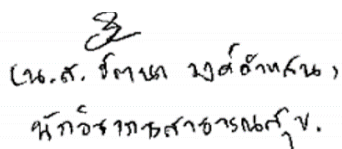 (น.ส. รัตนา วงค์คำแสน)
นักวิชาการสาธารณสุข.